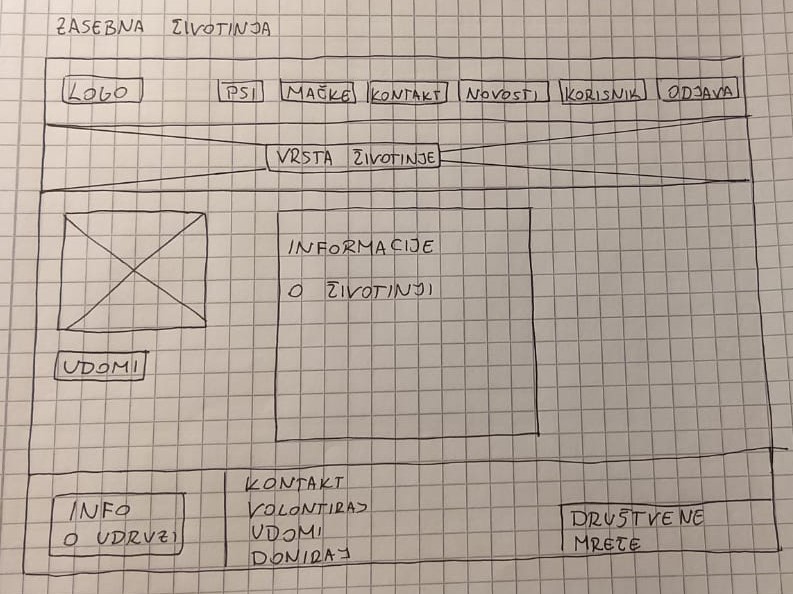 ZASEBNA ŽIVOTINJA
LOGO
PSI
MAČKE
KONTAKT
NOVOSTI
KORISNIK
ODJAVA
VRSTA ŽIVOTINJE
INFORMACIJE
O ŽIVOTINJI
UDOMI
INFO
O UDRUZI
KONTAKT
VOLONTIRAJ
UDOMI
DONIRAJ
DRUŠTVENE
MREŽE